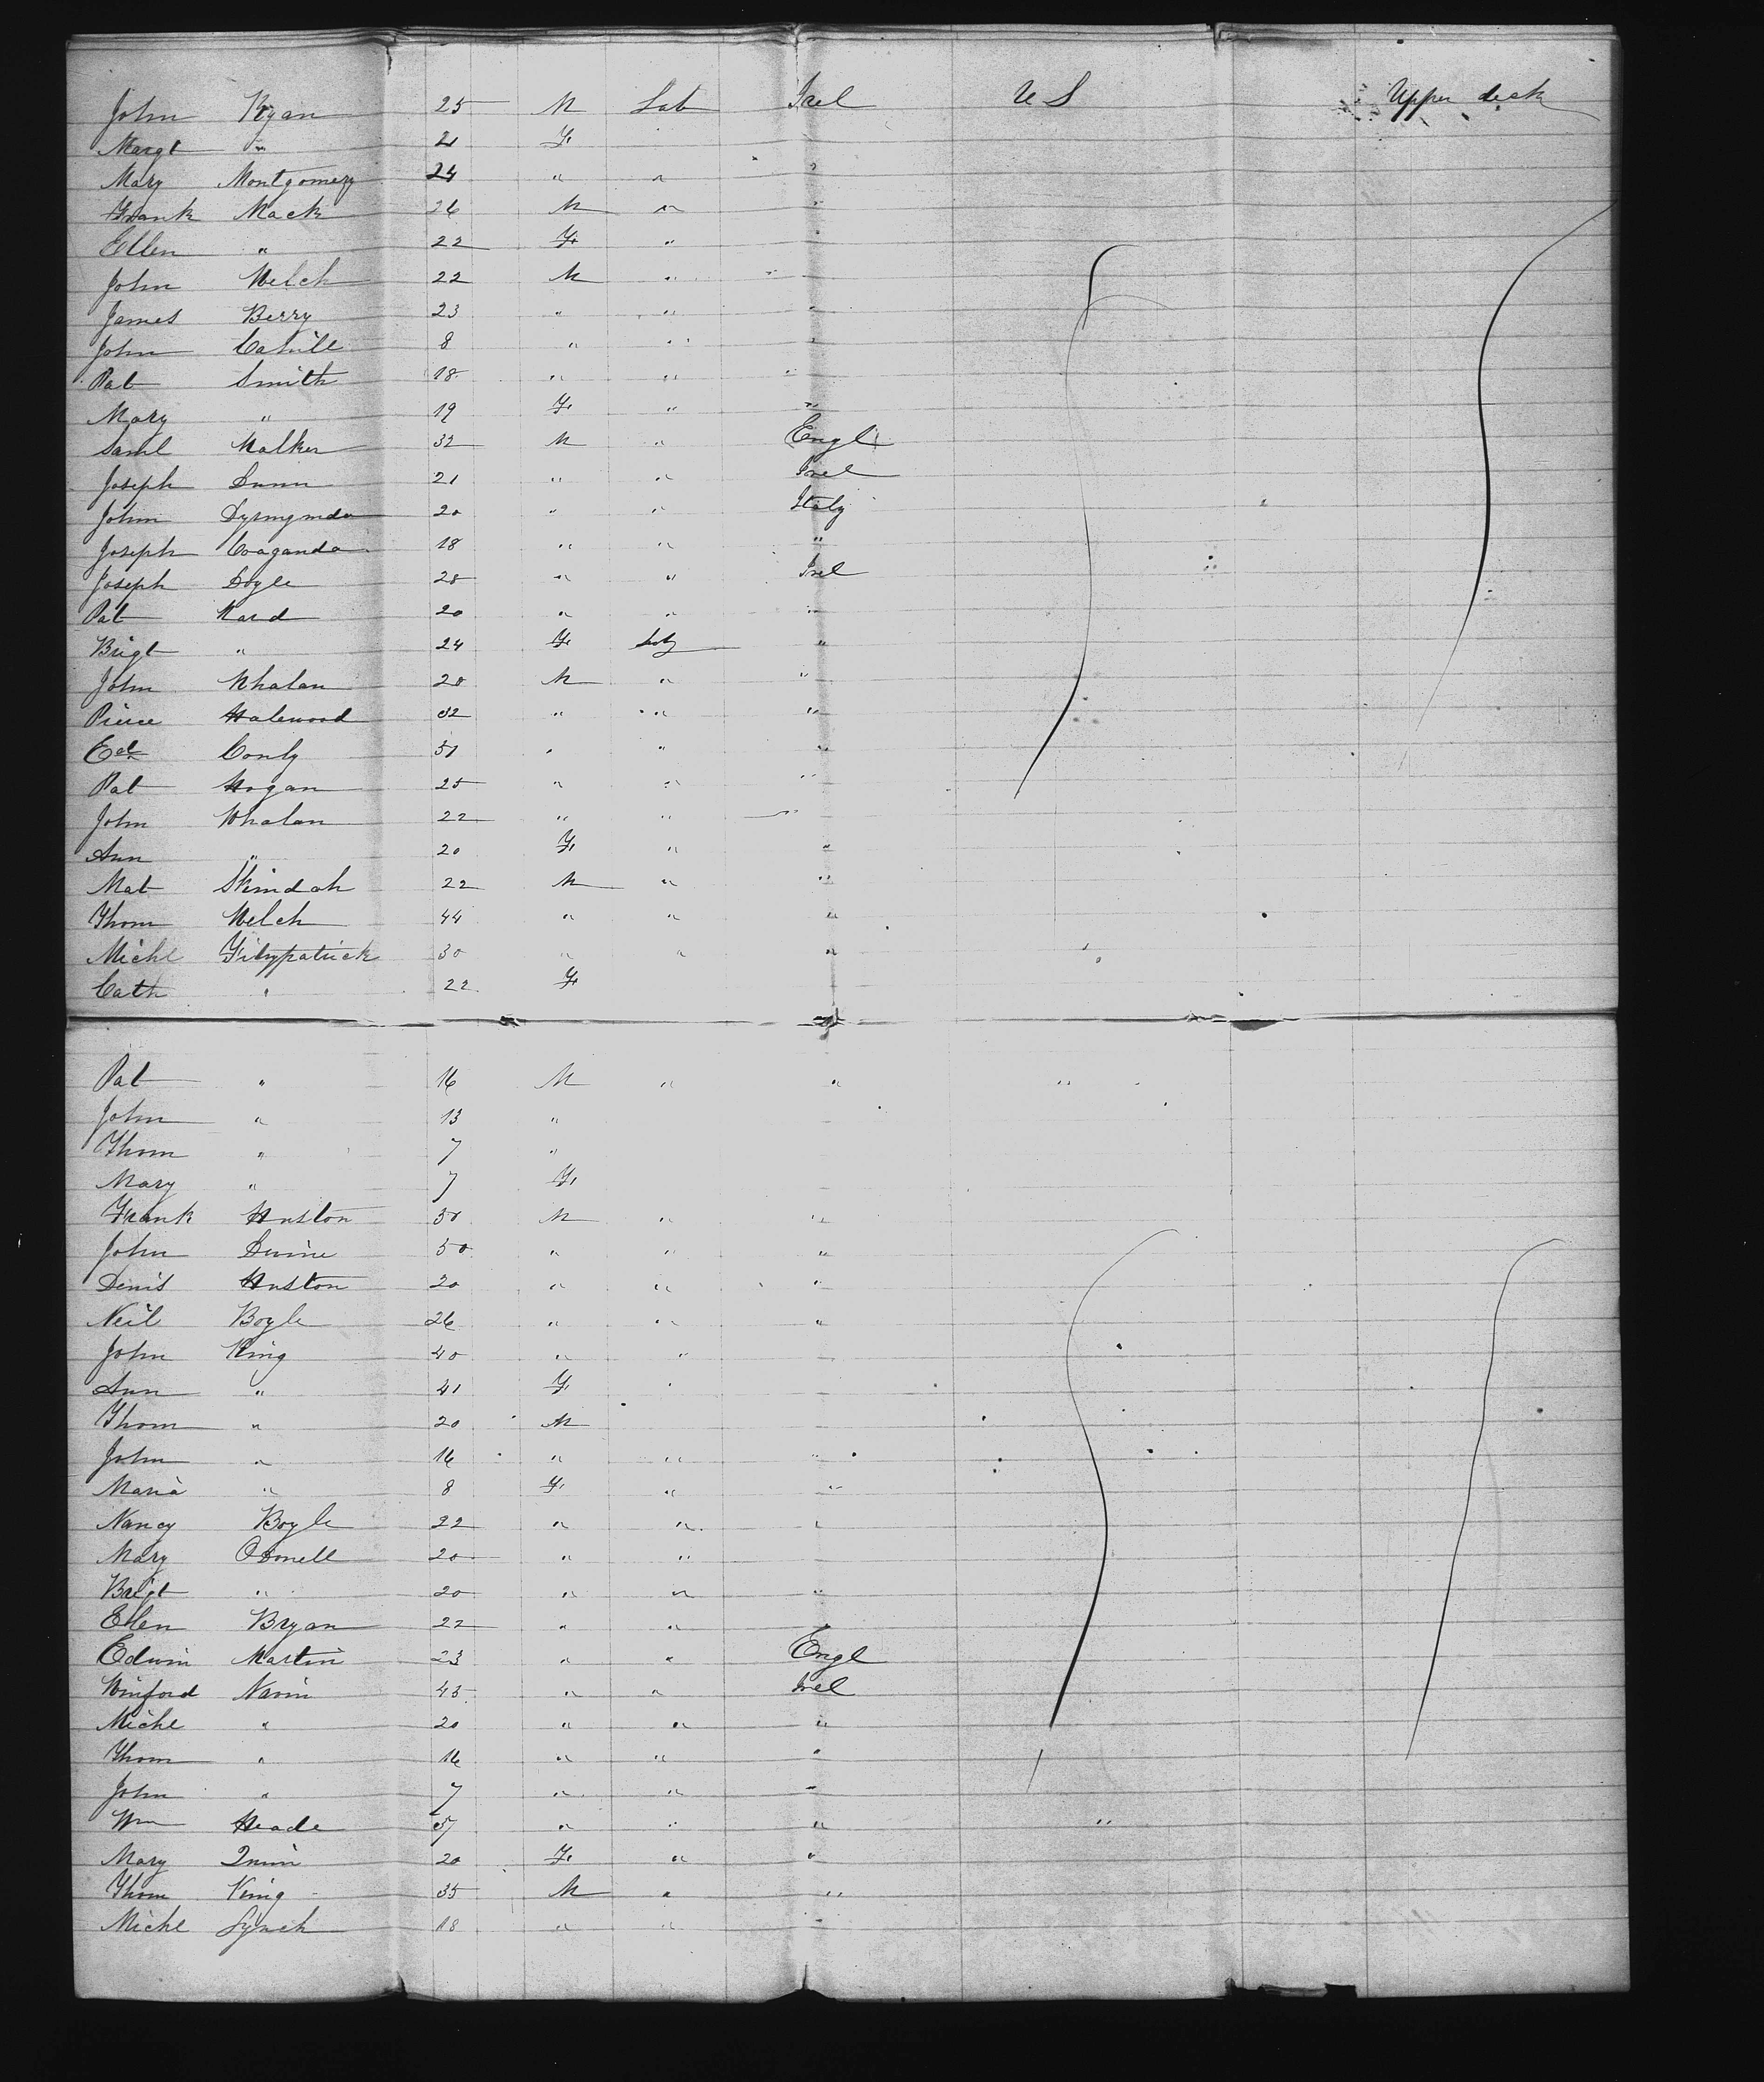 John Ryan 25 M Lab Irel U S Upper deck
Margt " 21 F.
Mary Montgomery 24 " " "
Frank Mack 26 M " "
Ellen " 22 F. " "
John Welch 22 M " "
James Berry 23 " " "
John Cahill 8 " " "
Pat Smith 18 " " "
Mary " 19 F. " "
Saml Walker 32 M " Engl
Joseph Dunn 21 " " Irel
John 20 " " Italy
Joseph 18 " " "
Joseph Doyle 28 " " Irel
Pat Ward 20 " " "
Brigt " 24 F. "
John Whalan 20 M " "
Pierce Halewood 32 " " "
Ed Conly " " "
Pat Hogan 25 " " "
John Whalan 22 " " "
Ann " 20 F. " "
Mat 22 M " "
Thom Welch 44 " " "
Michl Fitzpatrick 30 " " "
Cath " 22 F.
Pat " 16 M " " "
John " 13 "
Thom " 7 "
Mary " 7 F.
Frank Huston 30 M " "
John Devine 50 " " "
Denis Huston 20 " " "
Neil Boyle 26 " " "
John King 40 " "
Ann " 41 F. "
Thom " 20 M
John " 16 " " "
Maria " 8 F. " "
Nancy Boyle 22 " " "
Mary ODonell 20 " "
Brigt " 20 " " "
Ellen Bryan 22 " " "
Edwin Martin 23 " " Engl
Winford 45 " " Irel
Michl " 20 " " "
Thom " 16 " " "
John " 7 " " "
Wm Heade 37 " " " "
Mary Quinn 20 F. " "
Thom King 35 M " "
Michl Lynch 18 " " "